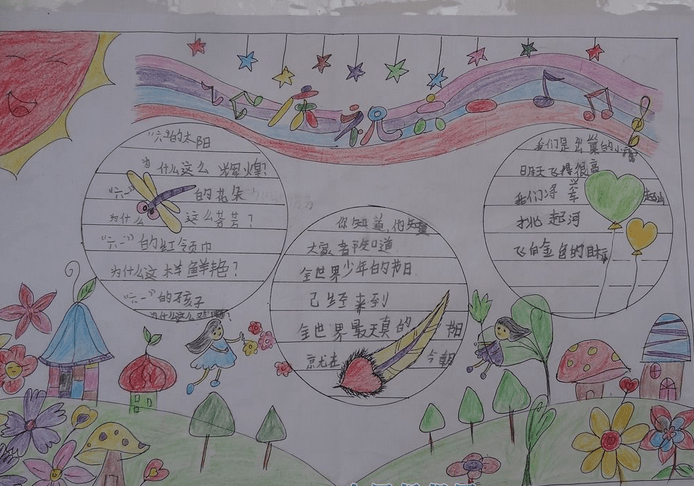 庆祝六一
"六一"的太阳
为什么这么辉煌?
"六一"的花朵
为什么这么芬芳?
"六一"的红领巾
为什么这样鲜艳?
"六一"的孩子
为什么这么
你知道,他知道
大家 都知道
全世界少年的节日
已经来到
全世界最天真的
就在 今朝
我们是出巢的小
明天飞得很高
我们将
挑起河
飞向金色的目标